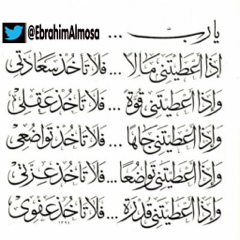 @EbrahimAlmosa
يا ربّ ...
إذا أعطيتني مالا ... فلا تأخذ سعادتي
وإذا أعطيتني قوة ... فلا تأخذ عقلي
وإذا أعطيتني جاها ... فلا تأخذ تواضعي
وإذا أعطيتني تواضعا ... فلا تأخذ عزتي
وإذا أعطيتني قدرة ... فلا تأخذ عفوي